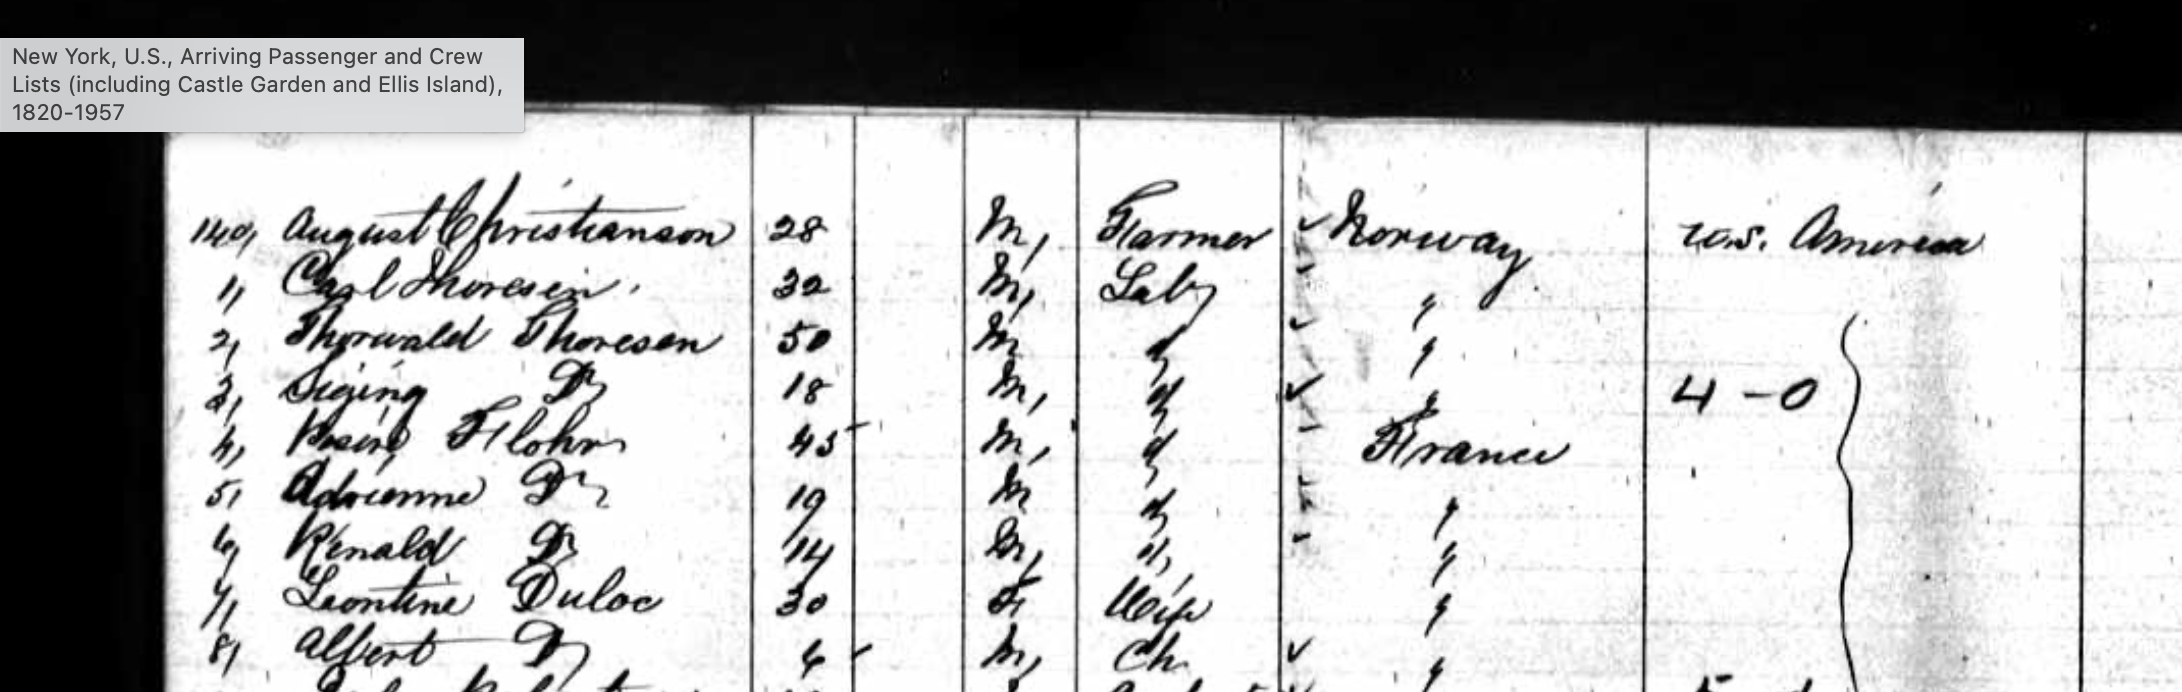 New York, U.S., Arriving Passenger and Crew
Lists (including Castle Garden and Ellis Island),
1820-1957
140, August Christianson 28 M, Farmer ✓ Norway U.S. America
1, Carl Thoresen 32 M, Labr "
2, Thorwald Thoresen 50 M " ✓ "
3, Do 18 M, " ✓ " 4-0
4, Flohr 45 M, " France
5, Adrienne Do 19 M " "
6, Renald Do 14 M, " "
7, Leontine Duloc 30 F Wife "
8, Albert Do M, Ch. ✓ "